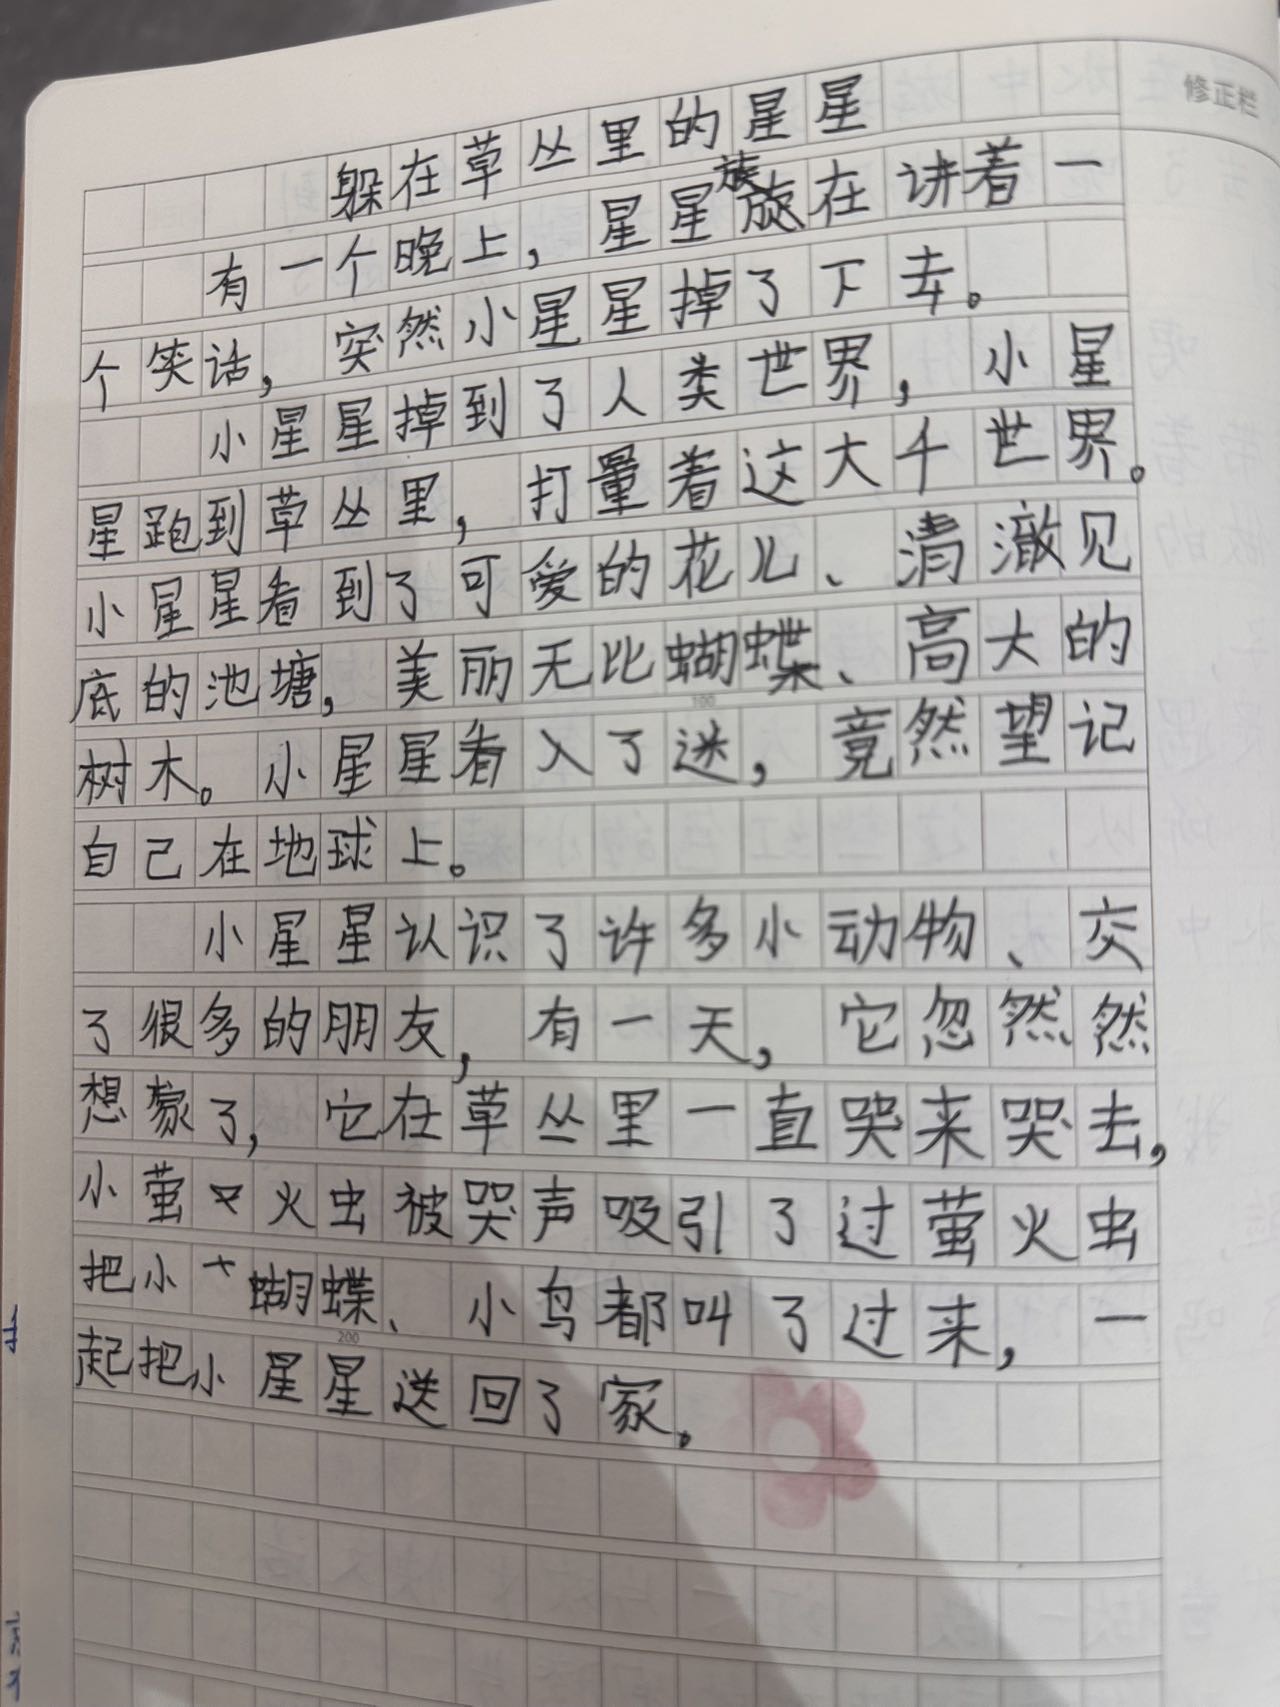 修正栏
躲在草丛里的星星
有一个晚上，星星族在讲着一
个笑话，突然小星星掉了下去。
小星星掉到了人类世界，小星
星跑到草丛里，打量着这大千世界。
小星星看到了可爱的花儿、清澈见
底的池塘，美丽无比蝴蝶、高大的
树木。小星星看入了迷，竟然望记
自己在地球上。
小星星认识了许多小动物、交
了很多的朋友，有一天，它忽然然
想家了，它在草丛里一直哭来哭去，
小萤火虫被哭声吸引了过萤火虫
把小蝴蝶、小鸟都叫了过来，一
起把小星星送回了家。
100
200